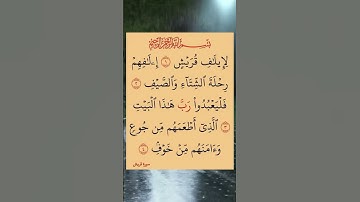 بِسْمِ اللَّهِ الرَّحْمَٰنِ الرَّحِيمِ
لِإِيلَٰفِ قُرَيْشٍ ١ إِۦلَٰفِهِمْ
رِحْلَةَ ٱلشِّتَآءِ وَٱلصَّيْفِ ٢
فَلْيَعْبُدُوا۟ رَبَّ هَٰذَا ٱلْبَيْتِ
٣ ٱلَّذِىٓ أَطْعَمَهُم مِّن جُوعٍ
وَءَامَنَهُم مِّنْ خَوْفٍۭ ٤
سورة قريش